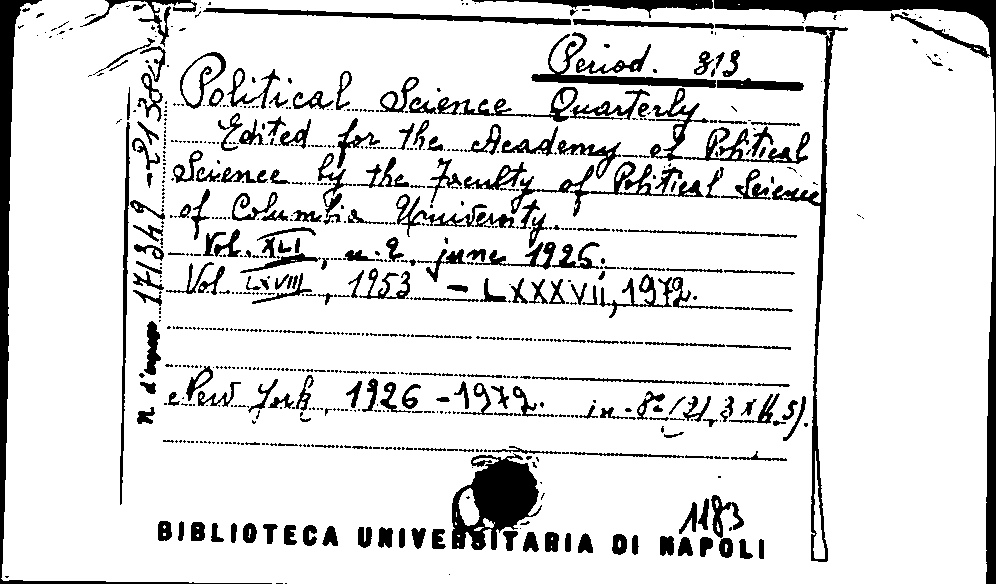 Period. 313
Political Science Quarterly.
Edited for the Academy of Political
Science by the Faculty of Political Science
of Columbia University.
Vol. XLI, n. 2, june 1926;
Vol. LXVIII, 1953 - LXXXVII, 1972.
New York, 1926 - 1972. in-8°
N. d'ingresso 171349 -
1183
BIBLIOTECA UNIVERSITARIA DI NAPOLI